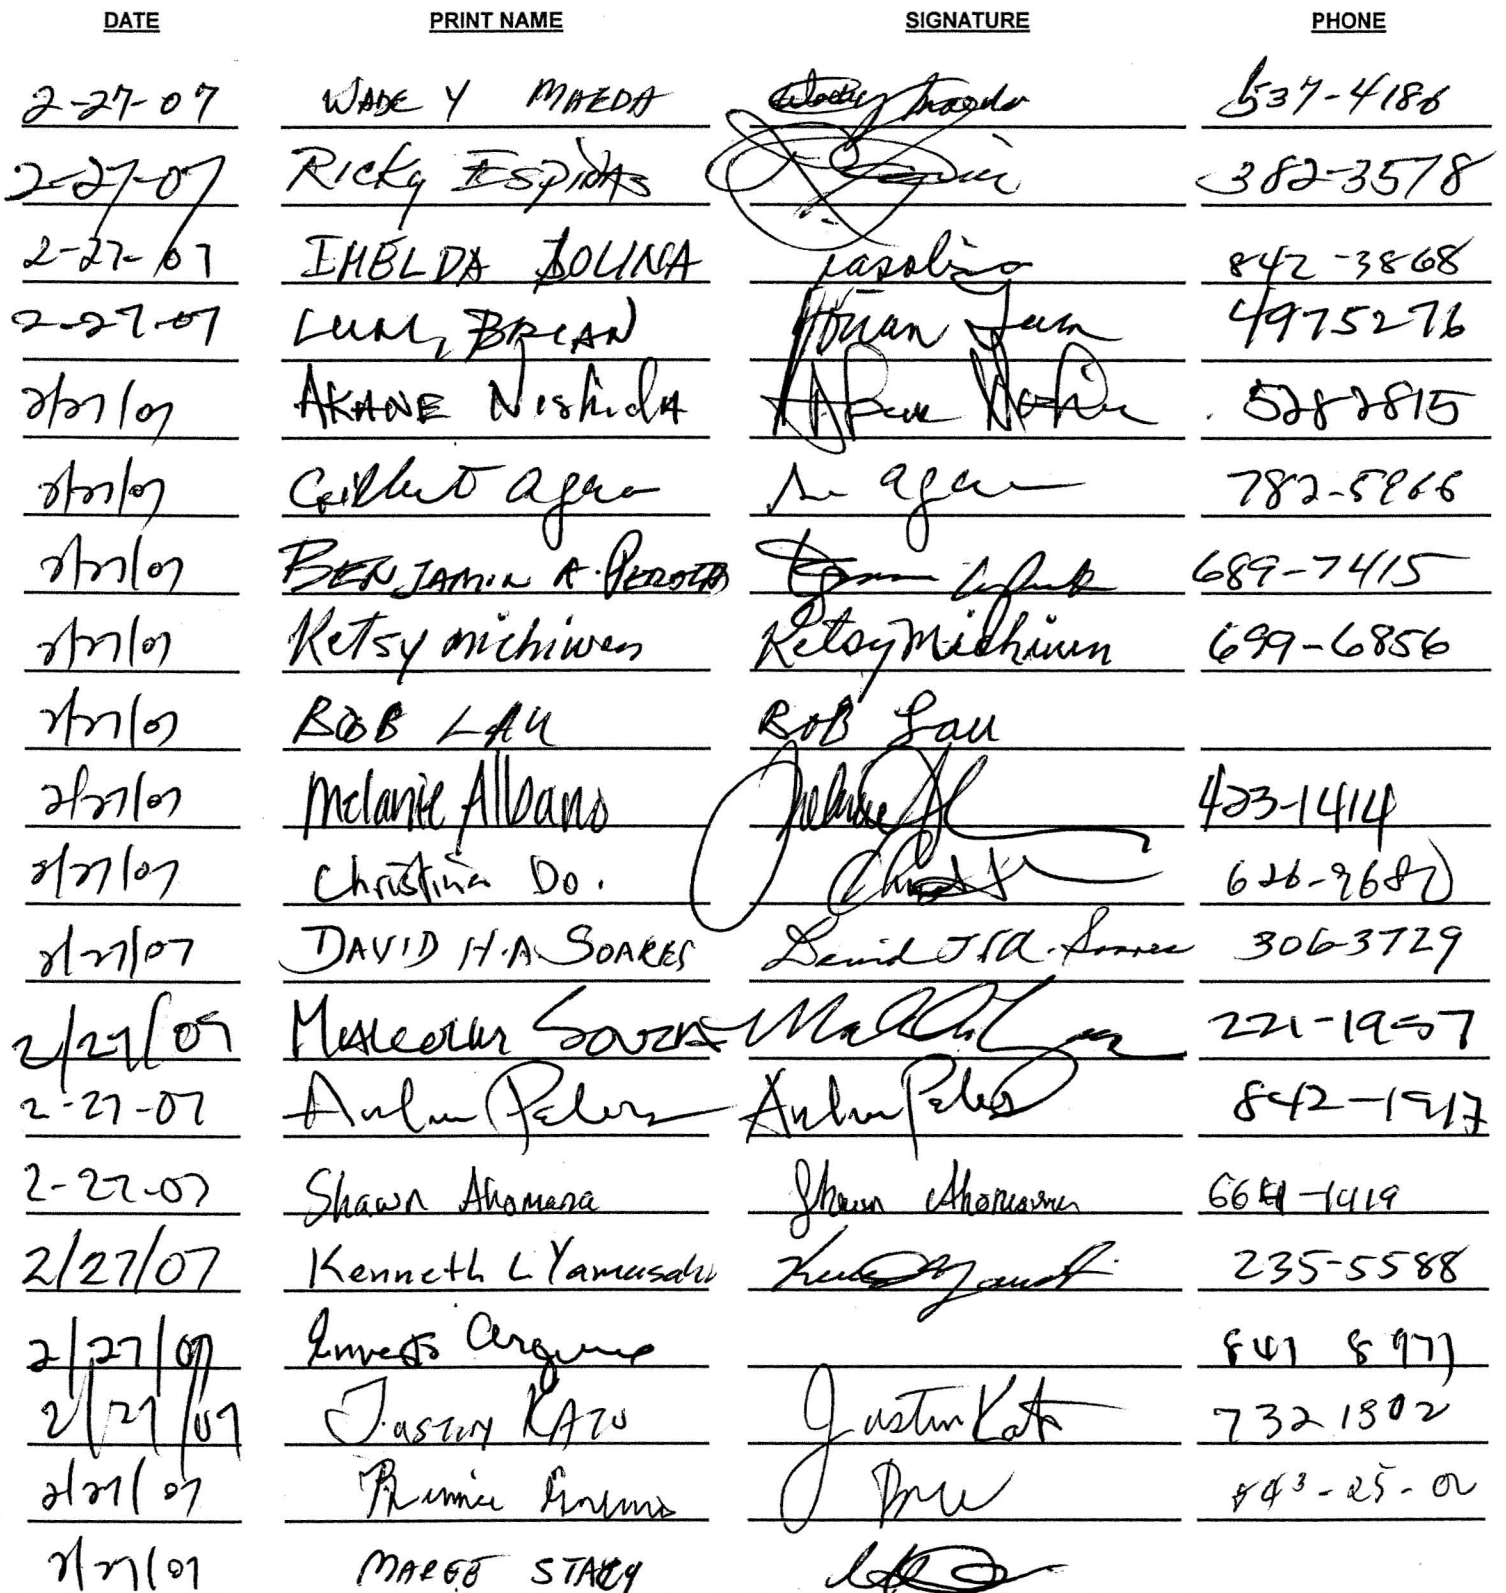 DATE PRINT NAME SIGNATURE PHONE
2-27-07 WADE Y MAEDA 537-4186
2-27-07 Ricky ESpinas 382-3578
2-27-07 IMELDA BOLINA 842-3868
2-27-07 LUM, BRIAN Brian Lum 4975276
2/27/07 AKANE NishidA 5282815
2/27/07 Gilbert agan agan 782-5966
2/27/07 BENJAMIN A. 689-7415
2/27/07 Ketsy michiwen Ketsy Michiwen 699-6856
2/27/07 BOB LAU BOB Lau
2/27/07 Melanie Albano 423-1414
2/27/07 Christina Do.
2/27/07 DAVID H.A. SOARES David H.A. Soares 306-3729
2/27/07 Malcolm SOUZA 221-1957
2-27-07 Peters Peters 842-1917
2-27-07 Shawn Ahomana Shawn 1419
2/27/07 Kenneth L Yamasaki 235-5588
2/27/07 841 8971
2/27/07 Justin KATO Justin Kato 732 1302
2/27/07 843-25-02
2/27/07 MARGE STACY